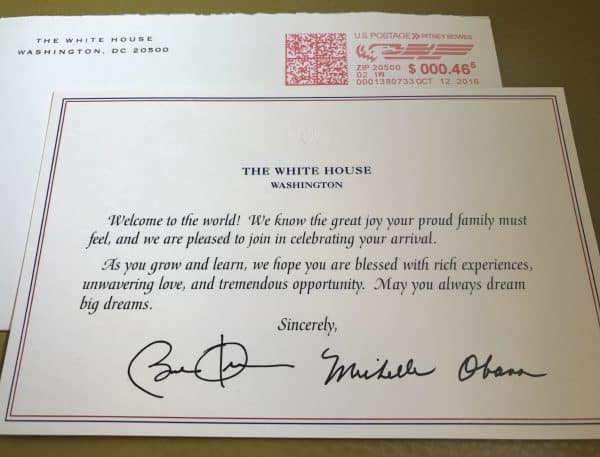 THE WHITE HOUSE
WASHINGTON, DC 20500
U.S. POSTAGE >> PITNEY BOWES
ZIP 20500 $ 000.46⁵
02 1W
0001380733 OCT 12 2016
THE WHITE HOUSE
WASHINGTON
Welcome to the world! We know the great joy your proud family must
feel, and we are pleased to join in celebrating your arrival.
As you grow and learn, we hope you are blessed with rich experiences,
unwavering love, and tremendous opportunity. May you always dream
big dreams.
Sincerely,
Michelle Obama